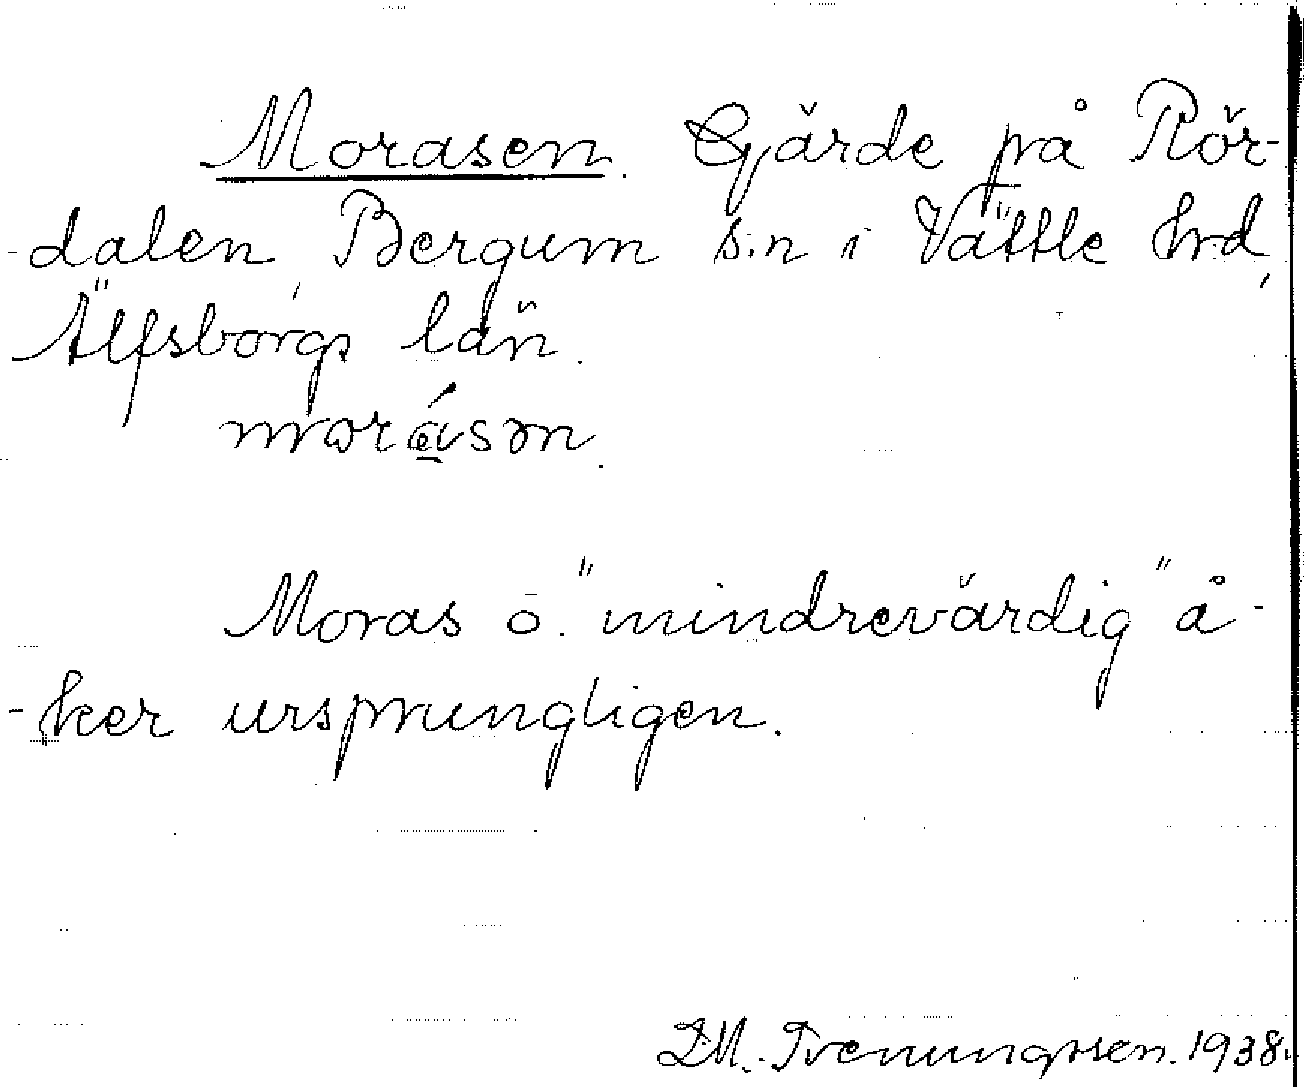 Morasen. Gärde på Rör-
-dalen, Bergum s:n i Vättle hrd,
Älfsborgs län.
moräsən.
Moras o. "mindrevärdig" å-
-ker ursprungligen.
1938.